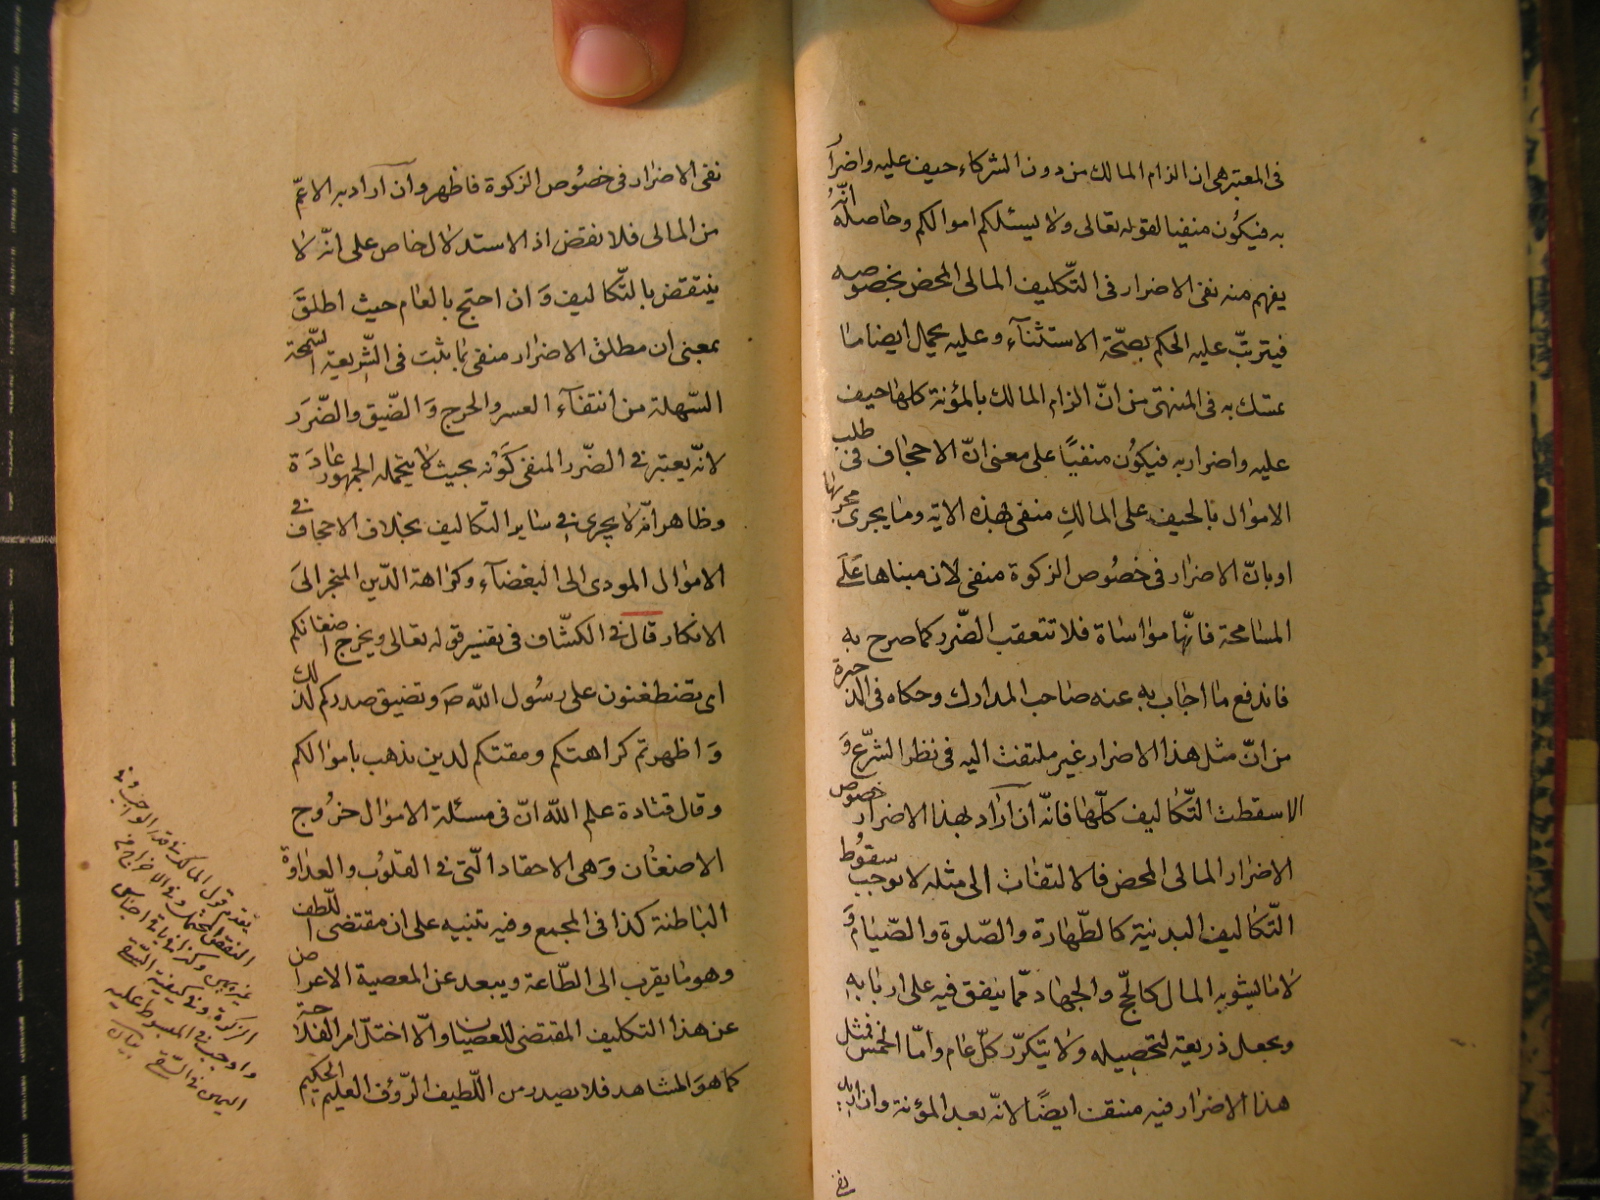 في المعتبر هى ان الزام المالك من دون الشركاء حيف عليه واضرار
به فيكون منفيا لقوله تعالى ولا يسئلكم اموالكم وحاصله انّه
يفهم منه نفى الاضرار فى التّكليف المالى المحض بخصوصه
فيترتّب عليه الحكم بصحّة الاستثنآء وعليه يحمل ايضا ما
تمسّك به فى المنتهى من انّ الزام المالك بالمؤنة كلها حيف
عليه واضرار به فيكون منفيًا على معنى انّ الاجحاف فى طلب
الاموال بالحيف على المالكِ منفى بهذه الاية وما يجرى مجريها
او بانّ الاضرار فى خصُوص الزكوة منفى لان مبناها عَلَى
المسامحة فانّها مواساة فلا تتعقب الضّرر كما صرح به
فاندفع ما اجاب به عنه صاحب المدارك وحكاه فى الذخيرة
من انّ مثل هذا الاضرار غير ملتفت اليه فى نظر الشرّع وَ
الا سقطت التّكاليف كلّها فانّه ان آراد بهذا الاضرار خصوص
الاضرار المالى المحض فالالتفات الى مثله لا يوجب سقوُط
التّكاليف البدنية كالطّهارة والصّلوة والصّيام وَ
لا ما يشوبه المال كالحجّ والجهاد ممّا ينفق فيه على اربابهِ
ويجعل ذريعة لتحصيله ولا يتكرّر كلّ عام وامّا الخمس فمثل
هذا الاضرار فيه منتف ايضًا لانّه بعد المؤنة وان اريد
نفى
نفى الاضرار فى خصُوص الزكوة فاظهر وان آراد به الاعمّ
من المالى فلا نقض اذ الاستدلال خاص على انّه لا
ينتقض بالتّكاليف وَان احتج بالعام حيث اطلقَ
بمعنى ان مطلق الاضرار منفى بما يثبت فى الشّريعة السّمحة
السّهلة من انتفآء العسر والحرج وَالضّيق والضّرَر
لانّه يعتبر فى الضّرر المنفى كَوْنه بحيث لا يتحمله الجمهور عَادَة
وظاهر انّه لا يجرى فى ساير التكاليف بخلاف الاجحاف فى
الاموال المودى الى البغضآء وكراهة الدّين المنجر الىَ
الانكار قال فى الكشّاف فى تفسير قوله تعالى ويخرج اضغانكم
اى تضطغنون على رسُول الله صَ وتضيق صدوركم لذلك
وَاظهرتم كراهتكم ومقتكم لدين يذهب باموالكم
وقال قتادة علم الله انّ فى مسئلة الاموال خرُوج
الاضغان وَهى الاحقاد الّتى فى القلوُب والعداوة
الباطنة كذا فى المجمع وفيه تنبيه على ان مقتضى اللّطف
وهو ما يقرب الى الطّاعة ويبعد عن المعصية الاعراض
عن هذا التكليف المقتضى للعصيان والّا اختلّ امر الفلاحة
كما هوَ المشاهد فلا يصدر من اللّطيف الرّؤف العليم الحكيم